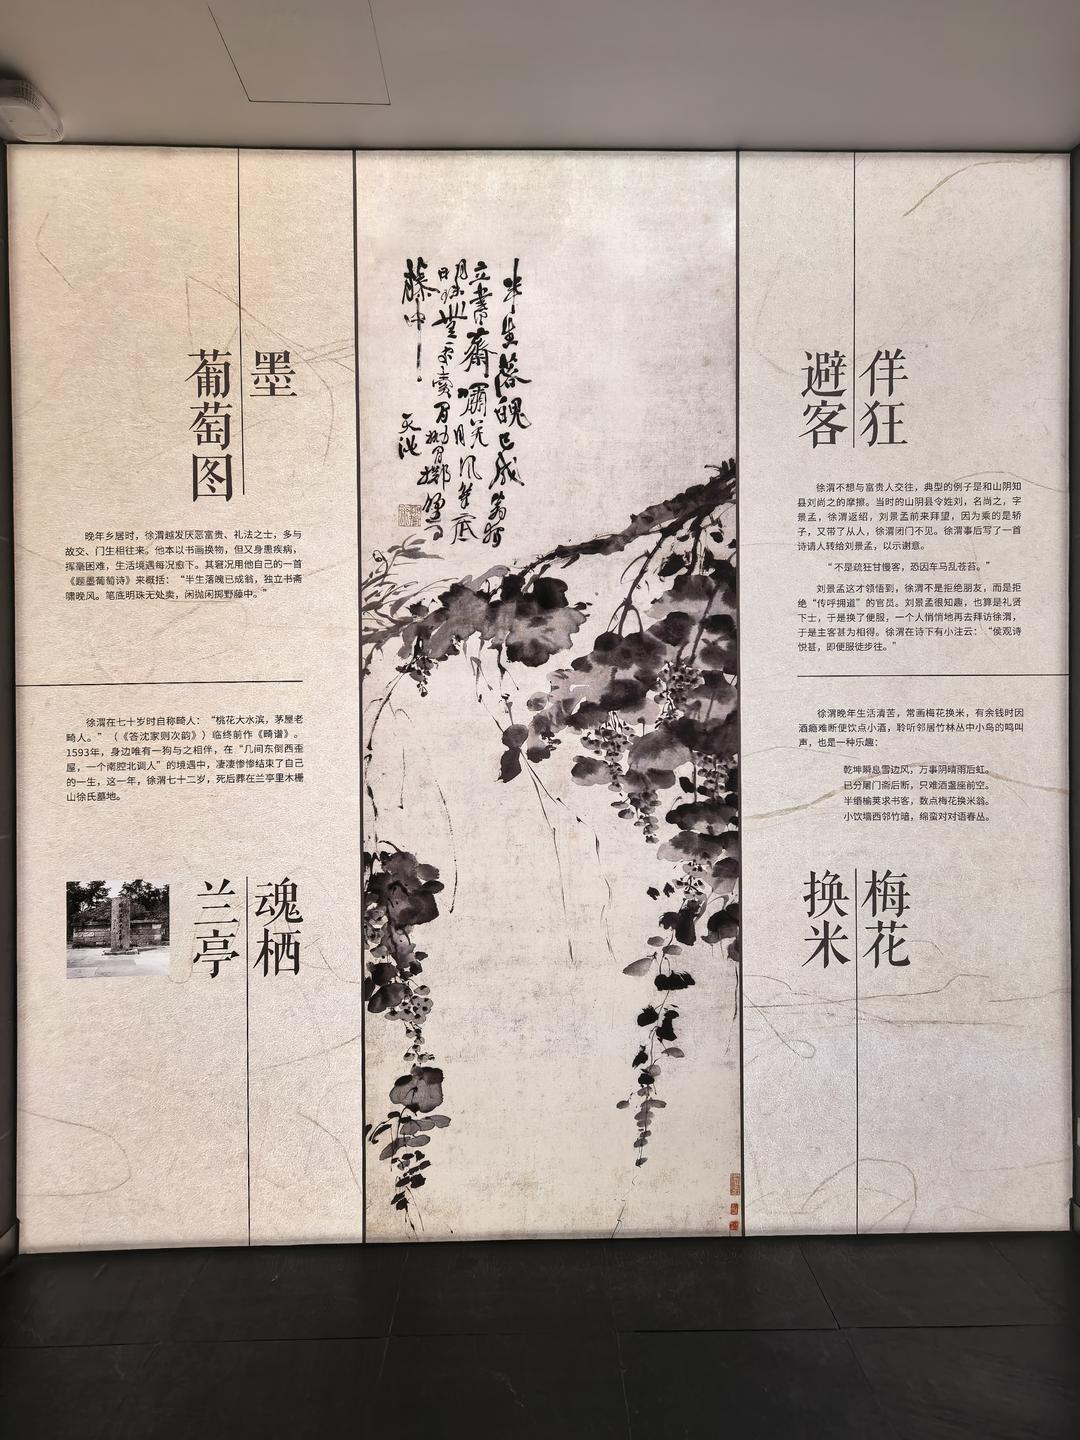 墨
葡萄图
晚年乡居时，徐渭越发厌恶富贵、礼法之士，多与
故交、门生相往来。他本以书画换物，但又身患疾病，
挥毫困难，生活境遇每况愈下。其窘况用他自己的一首
《题墨葡萄诗》来概括：“半生落魄已成翁，独立书斋
啸晚风。笔底明珠无处卖，闲抛闲掷野藤中。”
徐渭在七十岁时自称畸人：“桃花大水滨，茅屋老
畸人。”（《答沈家则次韵》）临终前作《畸谱》。
1593年，身边唯有一狗与之相伴，在“几间东倒西歪
屋，一个南腔北调人”的境遇中，凄凄惨惨结束了自己
的一生，这一年，徐渭七十二岁，死后葬在兰亭里木栅
山徐氏墓地。
魂栖
兰亭
半生落魄已成翁
立书斋啸晚风笔底
明珠无处卖闲抛闲掷野
藤中
天池
佯狂
避客
徐渭不想与富贵人交往，典型的例子是和山阴知
县刘尚之的摩擦。当时的山阴县令姓刘，名尚之，字
景孟，徐渭返绍，刘景孟前来拜望，因为乘的是轿
子，又带了从人，徐渭闭门不见。徐渭事后写了一首
诗请人转给刘景孟，以示谢意。
“不是疏狂甘慢客，恐因车马乱苍苔。”
刘景孟这才领悟到，徐渭不是拒绝朋友，而是拒
绝“传呼拥道”的官员。刘景孟很知趣，也算是礼贤
下士，于是换了便服，一个人悄悄地再去拜访徐渭，
于是主客甚为相得。徐渭在诗下有小注云：“侯观诗
悦甚，即便服徒步往。”
徐渭晚年生活清苦，常画梅花换米，有余钱时因
酒瘾难断便饮点小酒，聆听邻居竹林丛中小鸟的鸣叫
声，也是一种乐趣：
乾坤瞬息雪边风，万事阴晴雨后虹。
已分屠门斋后断，只难酒盏座前空。
半缗榆荚求书客，数点梅花换米翁。
小饮墙西邻竹暗，绵蛮对对语春丛。
梅花
换米